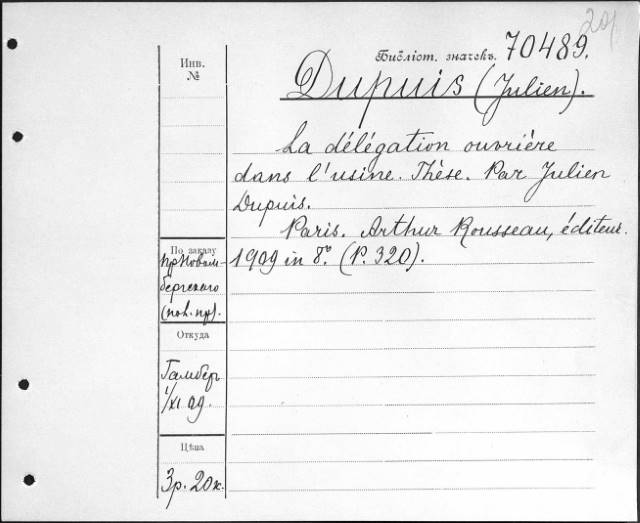 Инв.
№
Библіот. значекъ. 70489.
Dupuis (Julien).
La délégation ouvrière
dans l'usine. Thèse. Par Julien
Dupuis.
Paris. Arthur Rousseau, éditeur.
1909 in 8º. (P. 320).
По заказу
пр. Новом-
бергского
Откуда
Гамбер
1/XI 09.
Цѣна
3 р. 20 к.